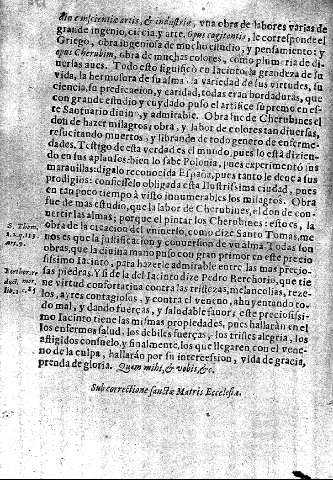 cũ consciencia artis, & industriæ, vna obra de labores varias de
grande ingenio, ciēcia y arte. Opus cogitantis, le corresponde el
Griego, obra ingeniosa de mucho estudio, y pensamiento: y
opus Cherubim, obra de muchas colores, como plumeria de di-
uersas aues. Todo esto significò en Iacinto, la grandeza de su
vida, la hermosura de su alma, la variedad de sus virtudes, su
ciencia, su predicacion, y caridad, todas erã bordaduras, que
con grande estudio y cuydado puso el artifice supremo en es-
te Santuario diuino, y admirable. Obra fue de Cherubines el
don de hazer milagros; obra, y labor de colores tan diuersas,
resucitando muertos, y librando de todo genero de enferme-
dades. Testigo de esta verdad es el mundo, pues lo está dizien-
do en sus aplausos: bien lo sabe Polonia, pues experimentó sus
marauillas: digalo reconocida España, pues tanto le deue a sus
prodigios: confiesselo obligada esta Ilustrissima ciudad, pues
en tan poco tiempo à visto innumerables los milagros. Obra
fue de mas estudio, que la labor de Cherubines, el don de con-
uertir las almas; porque el pintar los Cherubines: esto es, la
obra de la creacion del vniuerso, como dize Santo Tomas, me
nos es que la justificacion y conuersion de vn alma. Todas son
obras, que la diuina mano puso con gran primor en este precio
sissimo Iacinto, para hazerle admirable entre las mas precio-
sas piedras. Y si de la del Iacinto dize Pedro Berchorio, que tie
ne virtud confortatina contra las tristezas, melancolias, reze-
los, ayres contagiosos, y contra el veneno, ahuyentando to-
do mal, y dando fuerças, y saludable sauor; este preciosissi-
mo Iacinto tiene las mismas propiedades, pues hallarán en el
los enfermos salud, los debiles fuerças, los tristes alegria, los
afligidos consuelo, y finalmente, los que llegaren con el vene-
no de la culpa, hallarán por su intercession, vida de gracia,
prenda de gloria. Quam mihi, & vobis, &c.
S. Thom.
1.2.q.113.
art.9.
Berthor. re
duct. mor.
lib.
Sub correctione sanctæ Matris Ecclesiæ.